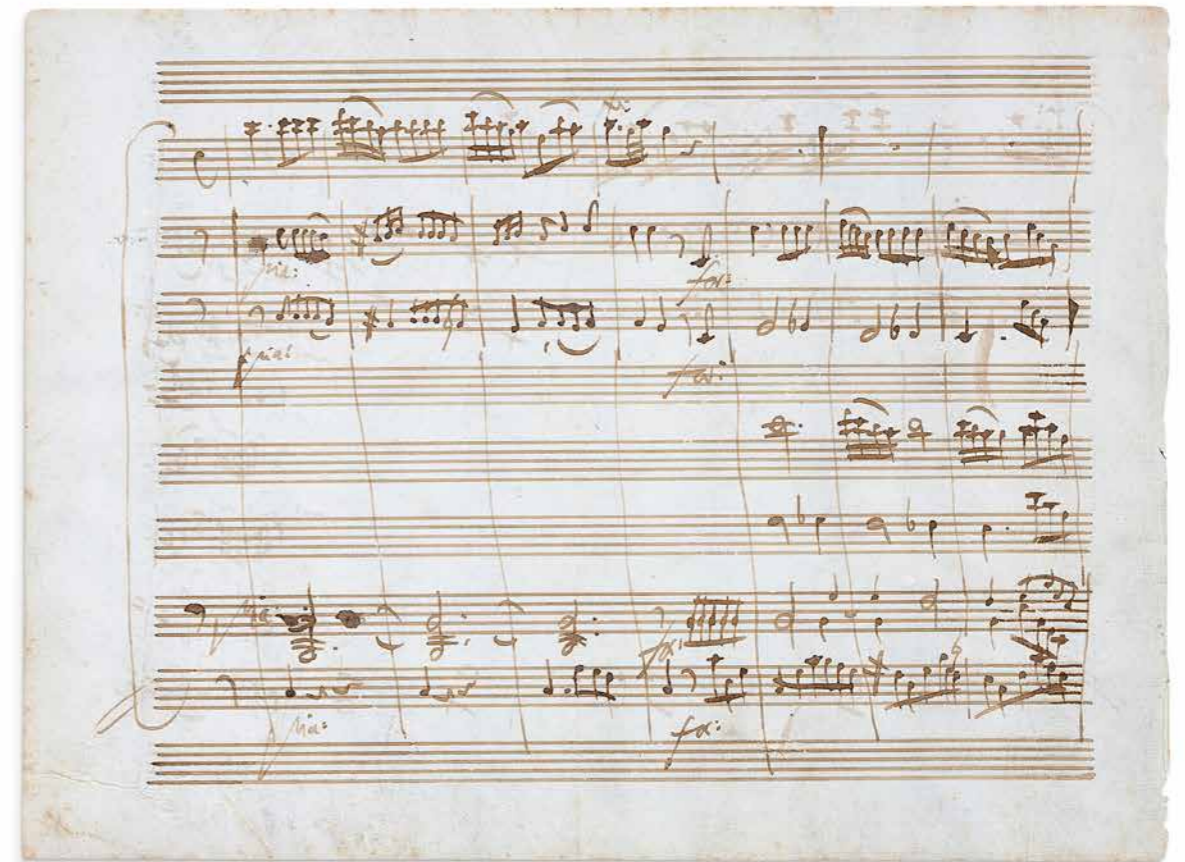 pia:
for:
pia:
for:
pia:
for:
pia:
for: